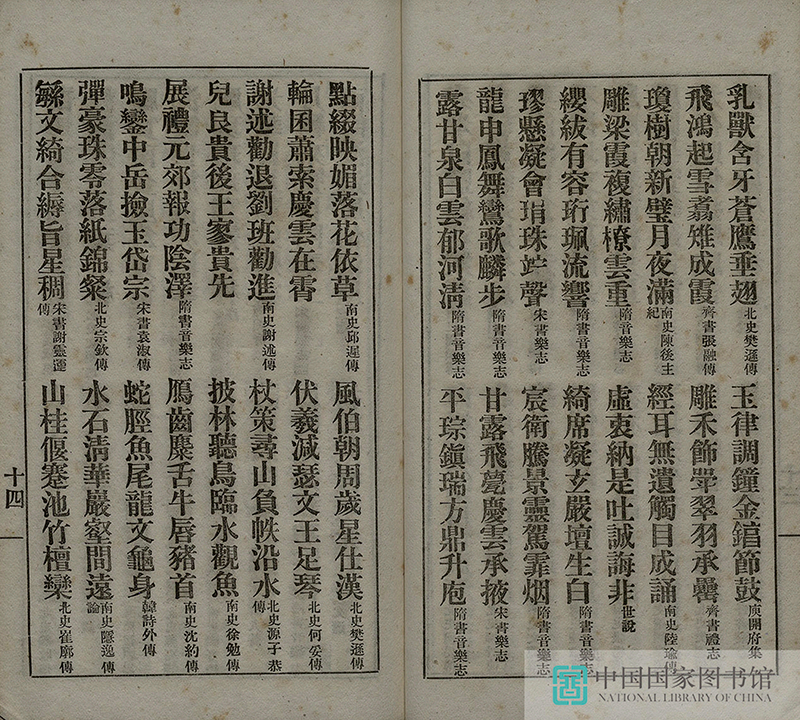 乳獸含牙蒼鷹垂翅 北史樊遜傳 玉律調鐘金錞節鼓 庾開府集
飛鴻起雪翥雉成霞 齊書張融傳 雕禾飾斝翠羽承罍 齊書禮志
瓊樹朝新璧月夜滿 南史陳後主紀 經耳無遺觸目成誦 南史陸瑜傳
雕梁霞複繡橑雲重 隋書音樂志 虛衷納是吐誠誨非 世說
纓紱有容珩珮流響 隋書音樂志 綺席凝玄嚴壇生白 隋書音樂志
璆懸凝會珇珠竚聲 宋書樂志 宸衛騰景靈駕霏烟 隋書音樂志
龍申鳳舞鸞歌麟步 隋書音樂志 甘露飛甍慶雲承掖 宋書樂志
露甘泉白雲郁河淸 隋書音樂志 平琮鎭瑞方鼎升庖 隋書音樂志
點綴映媚落花依草 南史邱遲傳 風伯朝周歲星仕漢 北史樊遜傳
輪囷蕭索慶雲在霄 伏羲減瑟文王足琴 北史何妥傳
謝述勸退劉班勸進 南史謝述傳 杖策尋山負帙沿水 北史源子恭傳
兒良貴後王廖貴先 披林聽鳥臨水觀魚 南史徐勉傳
展禮元郊報功陰澤 隋書音樂志 鴈齒麋舌牛唇豬首 南史沈約傳
鳴鑾中岳撿玉岱宗 宋書袁淑傳 蛇脛魚尾龍文龜身 韓詩外傳
彈豪珠零落紙錦粲 北史宗欽傳 水石淸華巖壑閒遠 南史隱逸傳論
緐文綺合縟旨星稠 宋書謝靈運傳 山桂偃蹇池竹檀欒 北史崔廓傳
十四
中国国家图书馆
NATIONAL LIBRARY OF CHINA